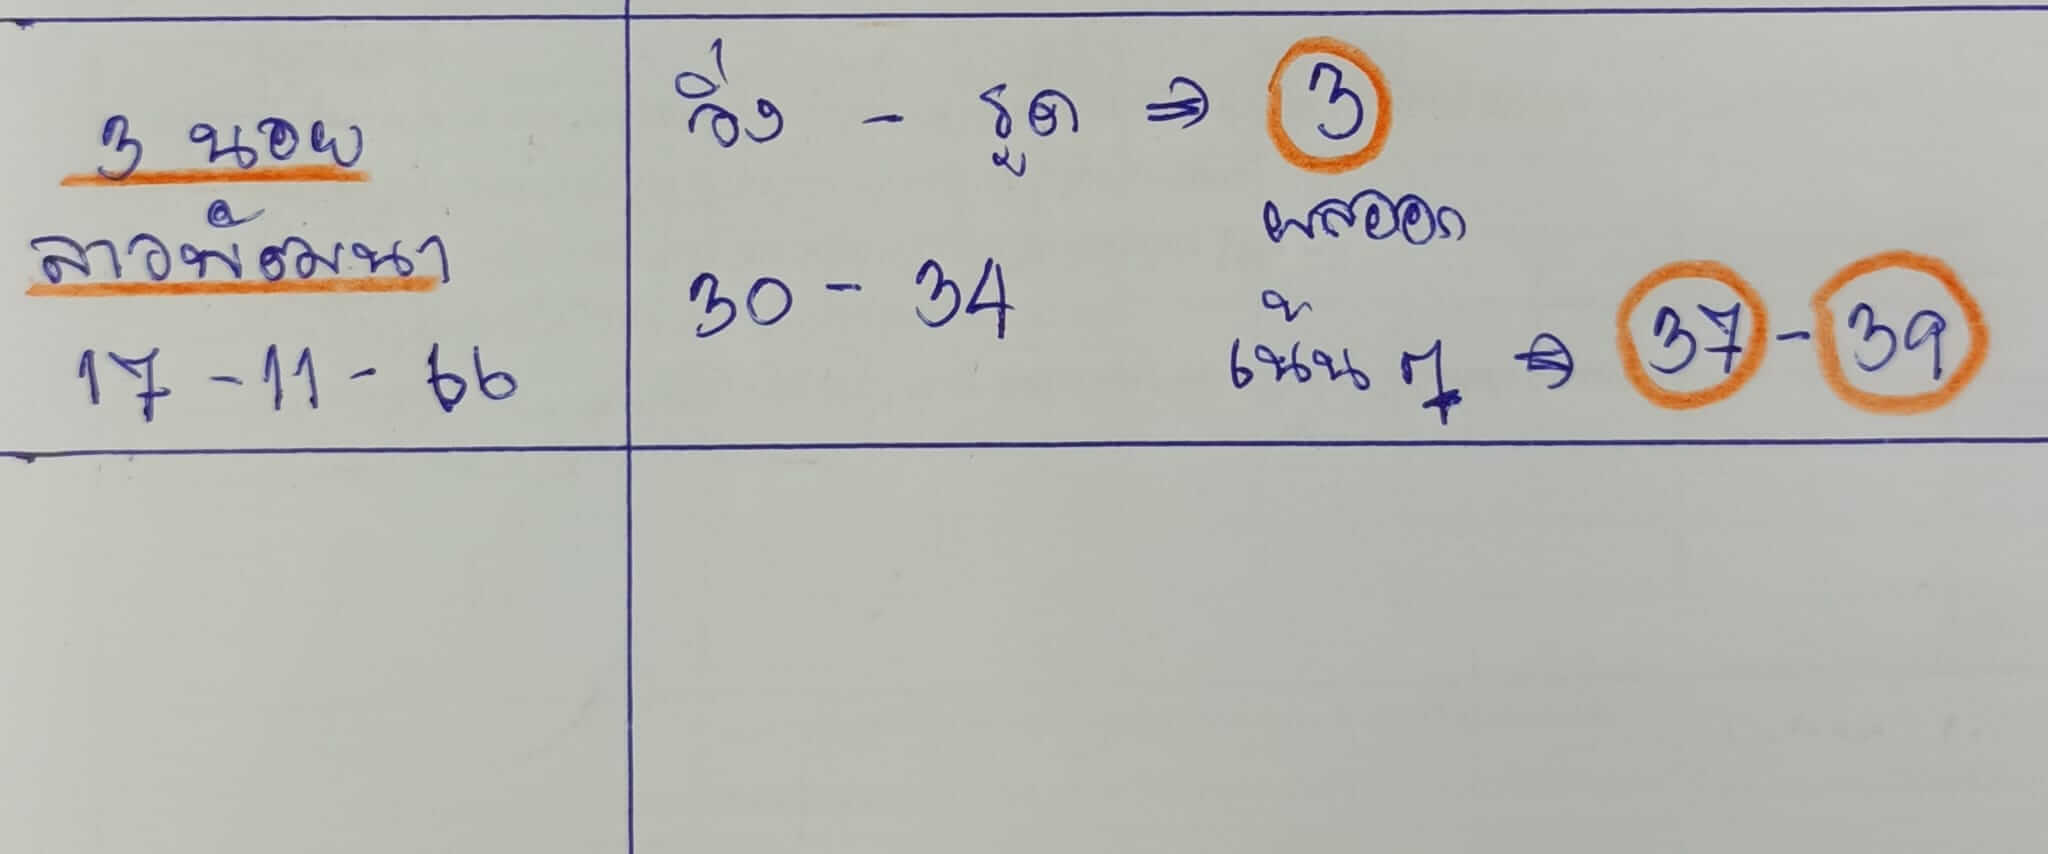 3 นอย
ลาวพัฒนา
17-11-66
วิ่ง - รูด ⇒ 3
ผลออก
30 - 34
เน้น ๆ ⇒ 37 - 39